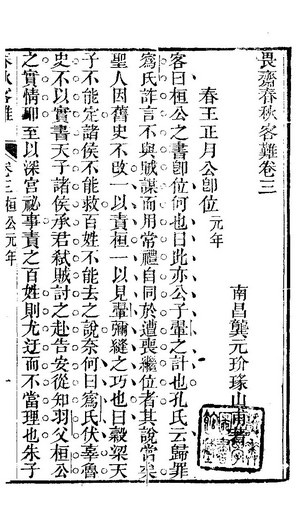 畏齋春秋客難卷三
南昌龔元玠瑑山甫著
春王正月公卽位元年
客曰桓公之書卽位何也曰此亦公子翬之計也孔氏云歸罪
寪氏詐言不與賊謀而用常禮自同於遭喪繼位者其說當矣
聖人因舊史不改一以責桓一以見翬彌縫之巧也曰穀梁天
子不能定諸侯不能救百姓不能去之說奈何曰寪氏伏辜魯
史不以實書天子諸侯承君弒賊討之赴告安從知羽父桓公
之實情卽至以深宮祕事責之百姓則尤迂而不當理也朱子
春秋客難
卷三桓公元年